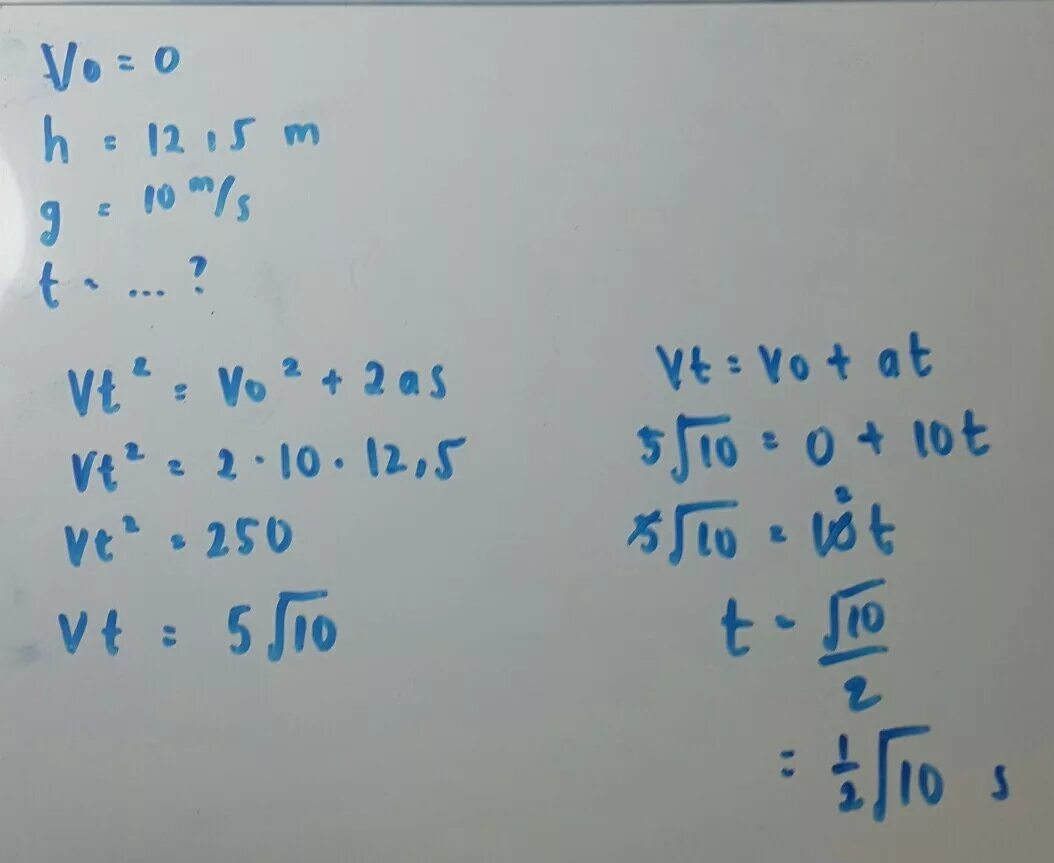 Vo = 0
h = 12,5 m
g = 10 m/s
t = ... ?
Vt² = Vo² + 2as
Vt² = 2 · 10 · 12,5
Vt² = 250
Vt = 5√10
Vt = Vo + at
5√10 = 0 + 10t
5√10 = 10² t
t = √10/2
= 1/2 √10 s